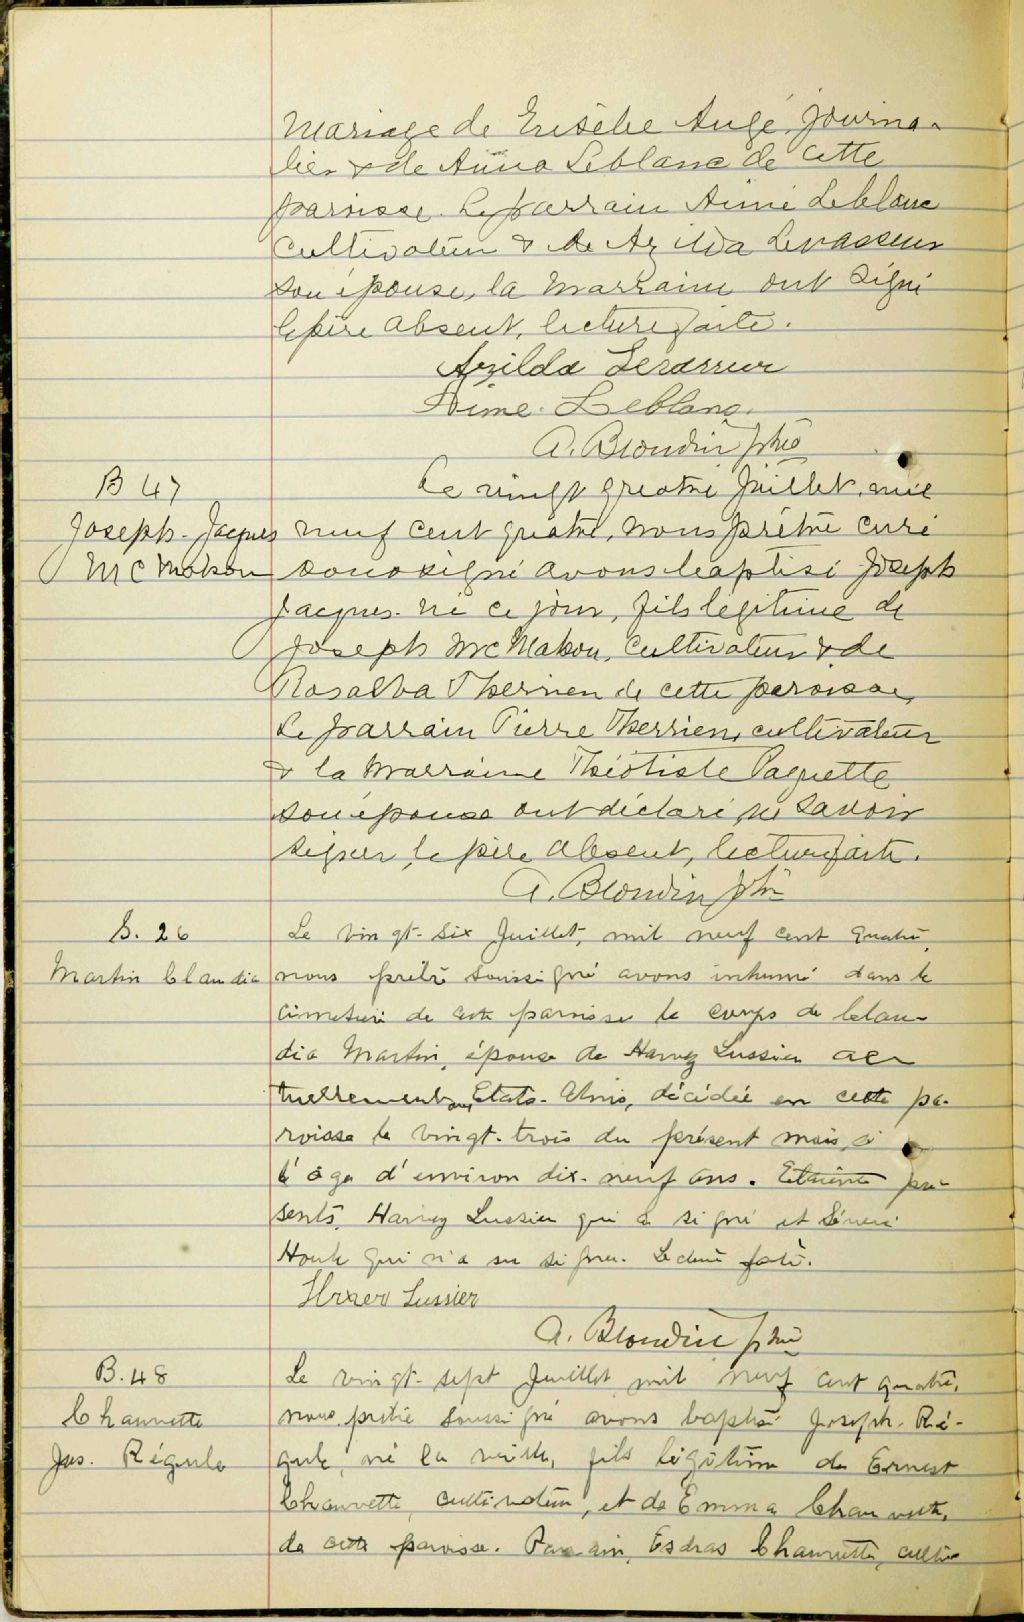 mariage de Eusèbe Augé, journa-
lier & de Anna Leblanc de cette
paroisse. Le parrain Aimé Leblanc
cultivateur & de Azilda Levasseur
son épouse, la marraine ont signé
le père absent, lecture faite.
Azilda Levasseur
Aimé Leblanc.
A. Blondin ptre
B 47
Joseph-Jacques
McMahon
Ce vingt quatre juillet, mil
neuf cent quatre, nous prêtre curé
soussigné avons baptisé Joseph
Jacques né ce jour, fils légitime de
Joseph McMahon, cultivateur & de
Rosalba Therrien de cette paroisse,
Le parrain Pierre Therrien, cultivateur
& la marraine Théotiste Paquette
son épouse ont déclaré ne savoir
signer, le père absent, lecture faite.
A. Blondin ptre
S. 26
Martin Claudia
Le vingt-six Juillet, mil neuf cent quatre,
nous prêtre soussigné avons inhumé dans le
cimetière de cette paroisse le corps de Clau-
dia Martin, épouse de Harvey Lussier ac-
tuellement aux Etats-Unis, décédée en cette pa-
roisse le vingt-trois du présent mois, à
l'âge d'environ dix-neuf ans. Etaient pré-
sents, Harvey Lussier qui a signé et Sévère
Houle qui n'a su signer. Lecture faite.
Lussier
A. Blondin ptre
B. 48
Chaurette
Jos. Régule
Le vingt-sept Juillet mil neuf cent quatre,
nous prêtre soussigné avons baptisé Joseph-Ré-
gule, né la veille, fils légitime de Ernest
Chaurette, cultivateur, et de Emma Chaurette,
de cette paroisse. Parrain, Esdras Chaurette, culti-